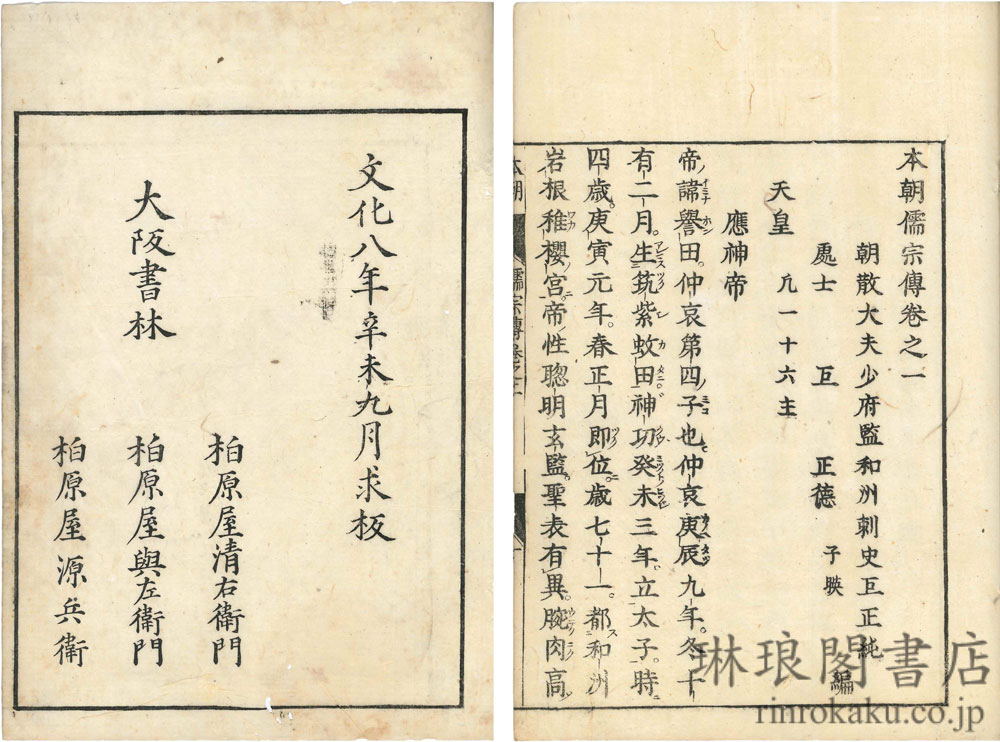 本朝儒宗傳卷之一
朝散大夫少府監和洲刺史巨正純
處士 巨 正德 子暎 編
天皇 凡一十六主
應神帝
帝諱譽田。仲哀第四子也。仲哀庚辰九年。冬十
有二月。生筑紫蚊田。神功癸未三年。立太子。時
四歲。庚寅元年。春正月即位。歲七十一。都和洲
岩根稚櫻宮。帝性聰明玄監。聖表有異。腕肉高
本朝 儒宗傳卷之一
文化八年辛未九月求板
大阪書林
柏原屋清右衛門
柏原屋與左衛門
柏原屋源兵衛
琳琅閣書店
rinrokaku.co.jp